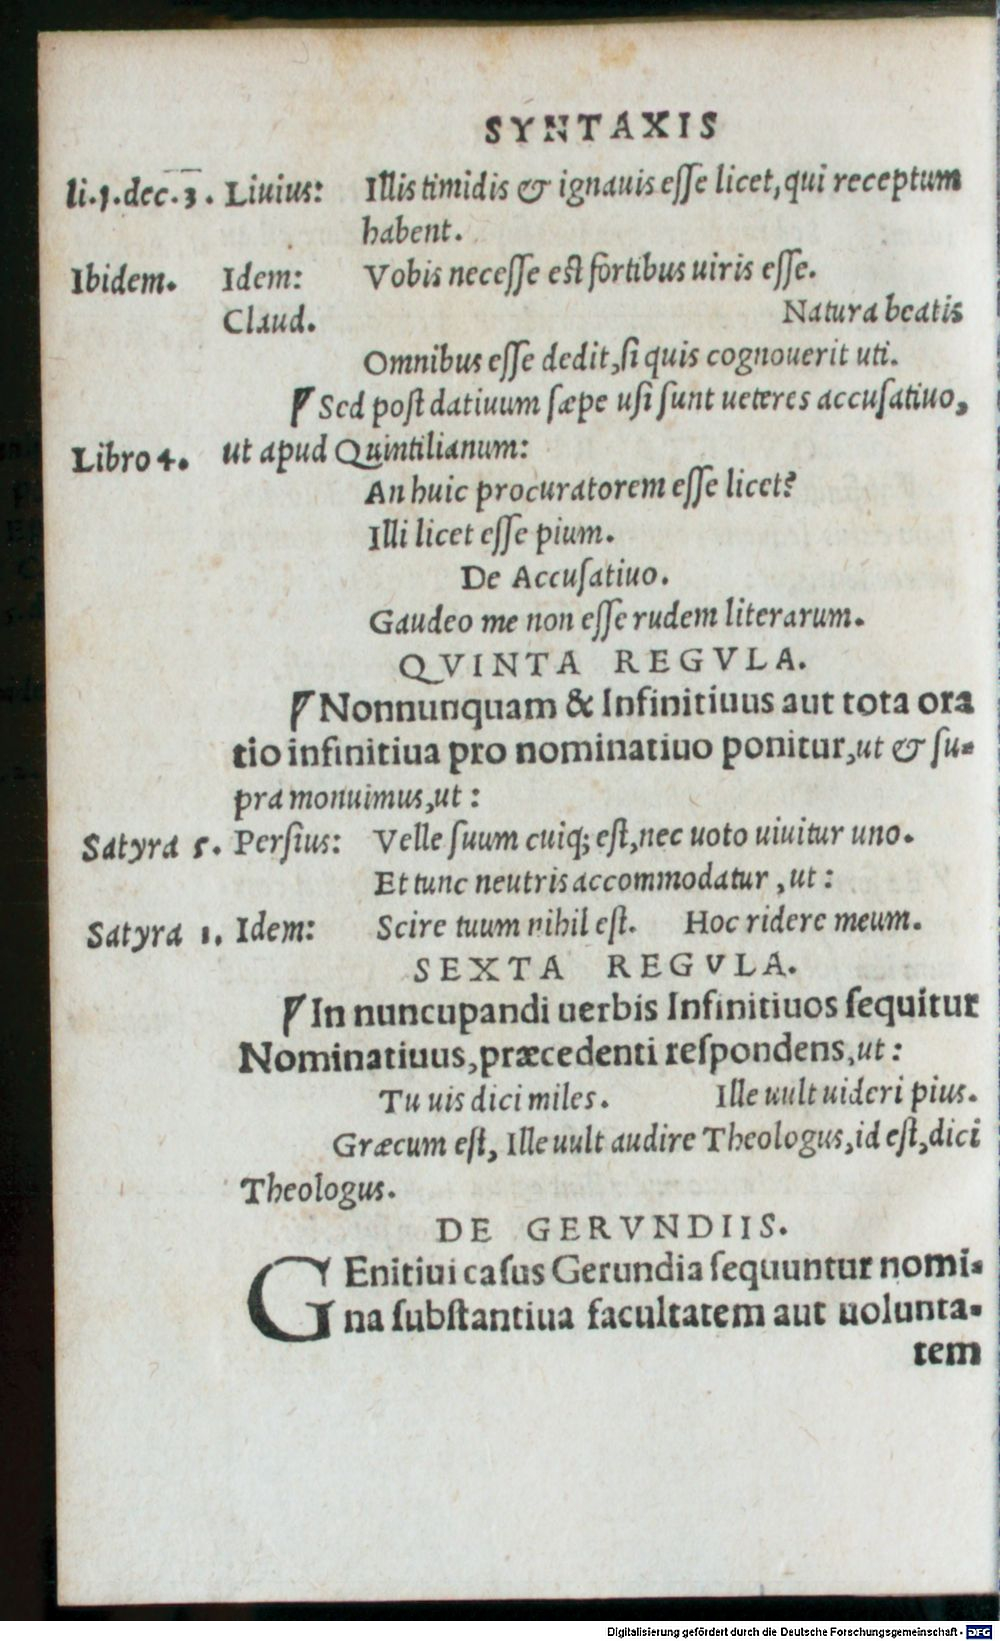 SYNTAXIS
li.1.dec.3. Liuius: Illis timidis & ignauis eſſe licet, qui receptum
habent.
Ibidem. Idem: Vobis neceſſe eſt fortibus uiris eſſe.
Claud. Natura beatis
Omnibus eſſe dedit, ſi quis cognouerit uti.
Sed poſt datiuum ſæpe uſi ſunt ueteres accuſatiuo,
Libro 4. ut apud Quintilianum:
An huic procuratorem eſſe licet?
Illi licet eſſe pium.
De Accuſatiuo.
Gaudeo me non eſſe rudem literarum.
QVINTA REGVLA.
Nonnunquam & Infinitiuus aut tota ora
tio infinitiua pro nominatiuo ponitur, ut & ſu-
pra monuimus, ut:
Satyra 5. Perſius: Velle ſuum cuiq; eſt, nec uoto uiuitur uno.
Et tunc neutris accommodatur, ut:
Satyra 1. Idem: Scire tuum nihil eſt. Hoc ridere meum.
SEXTA REGVLA.
In nuncupandi uerbis Infinitiuos ſequitur
Nominatiuus, præcedenti reſpondens, ut:
Tu uis dici miles. Ille uult uideri pius.
Græcum eſt, Ille uult audire Theologus, id eſt, dici
Theologus.
DE GERVNDIIS.
GEnitiui caſus Gerundia ſequuntur nomi-
na ſubſtantiua facultatem aut uolunta-
tem
Digitalisierung gefördert durch die Deutsche Forschungsgemeinschaft - DFG